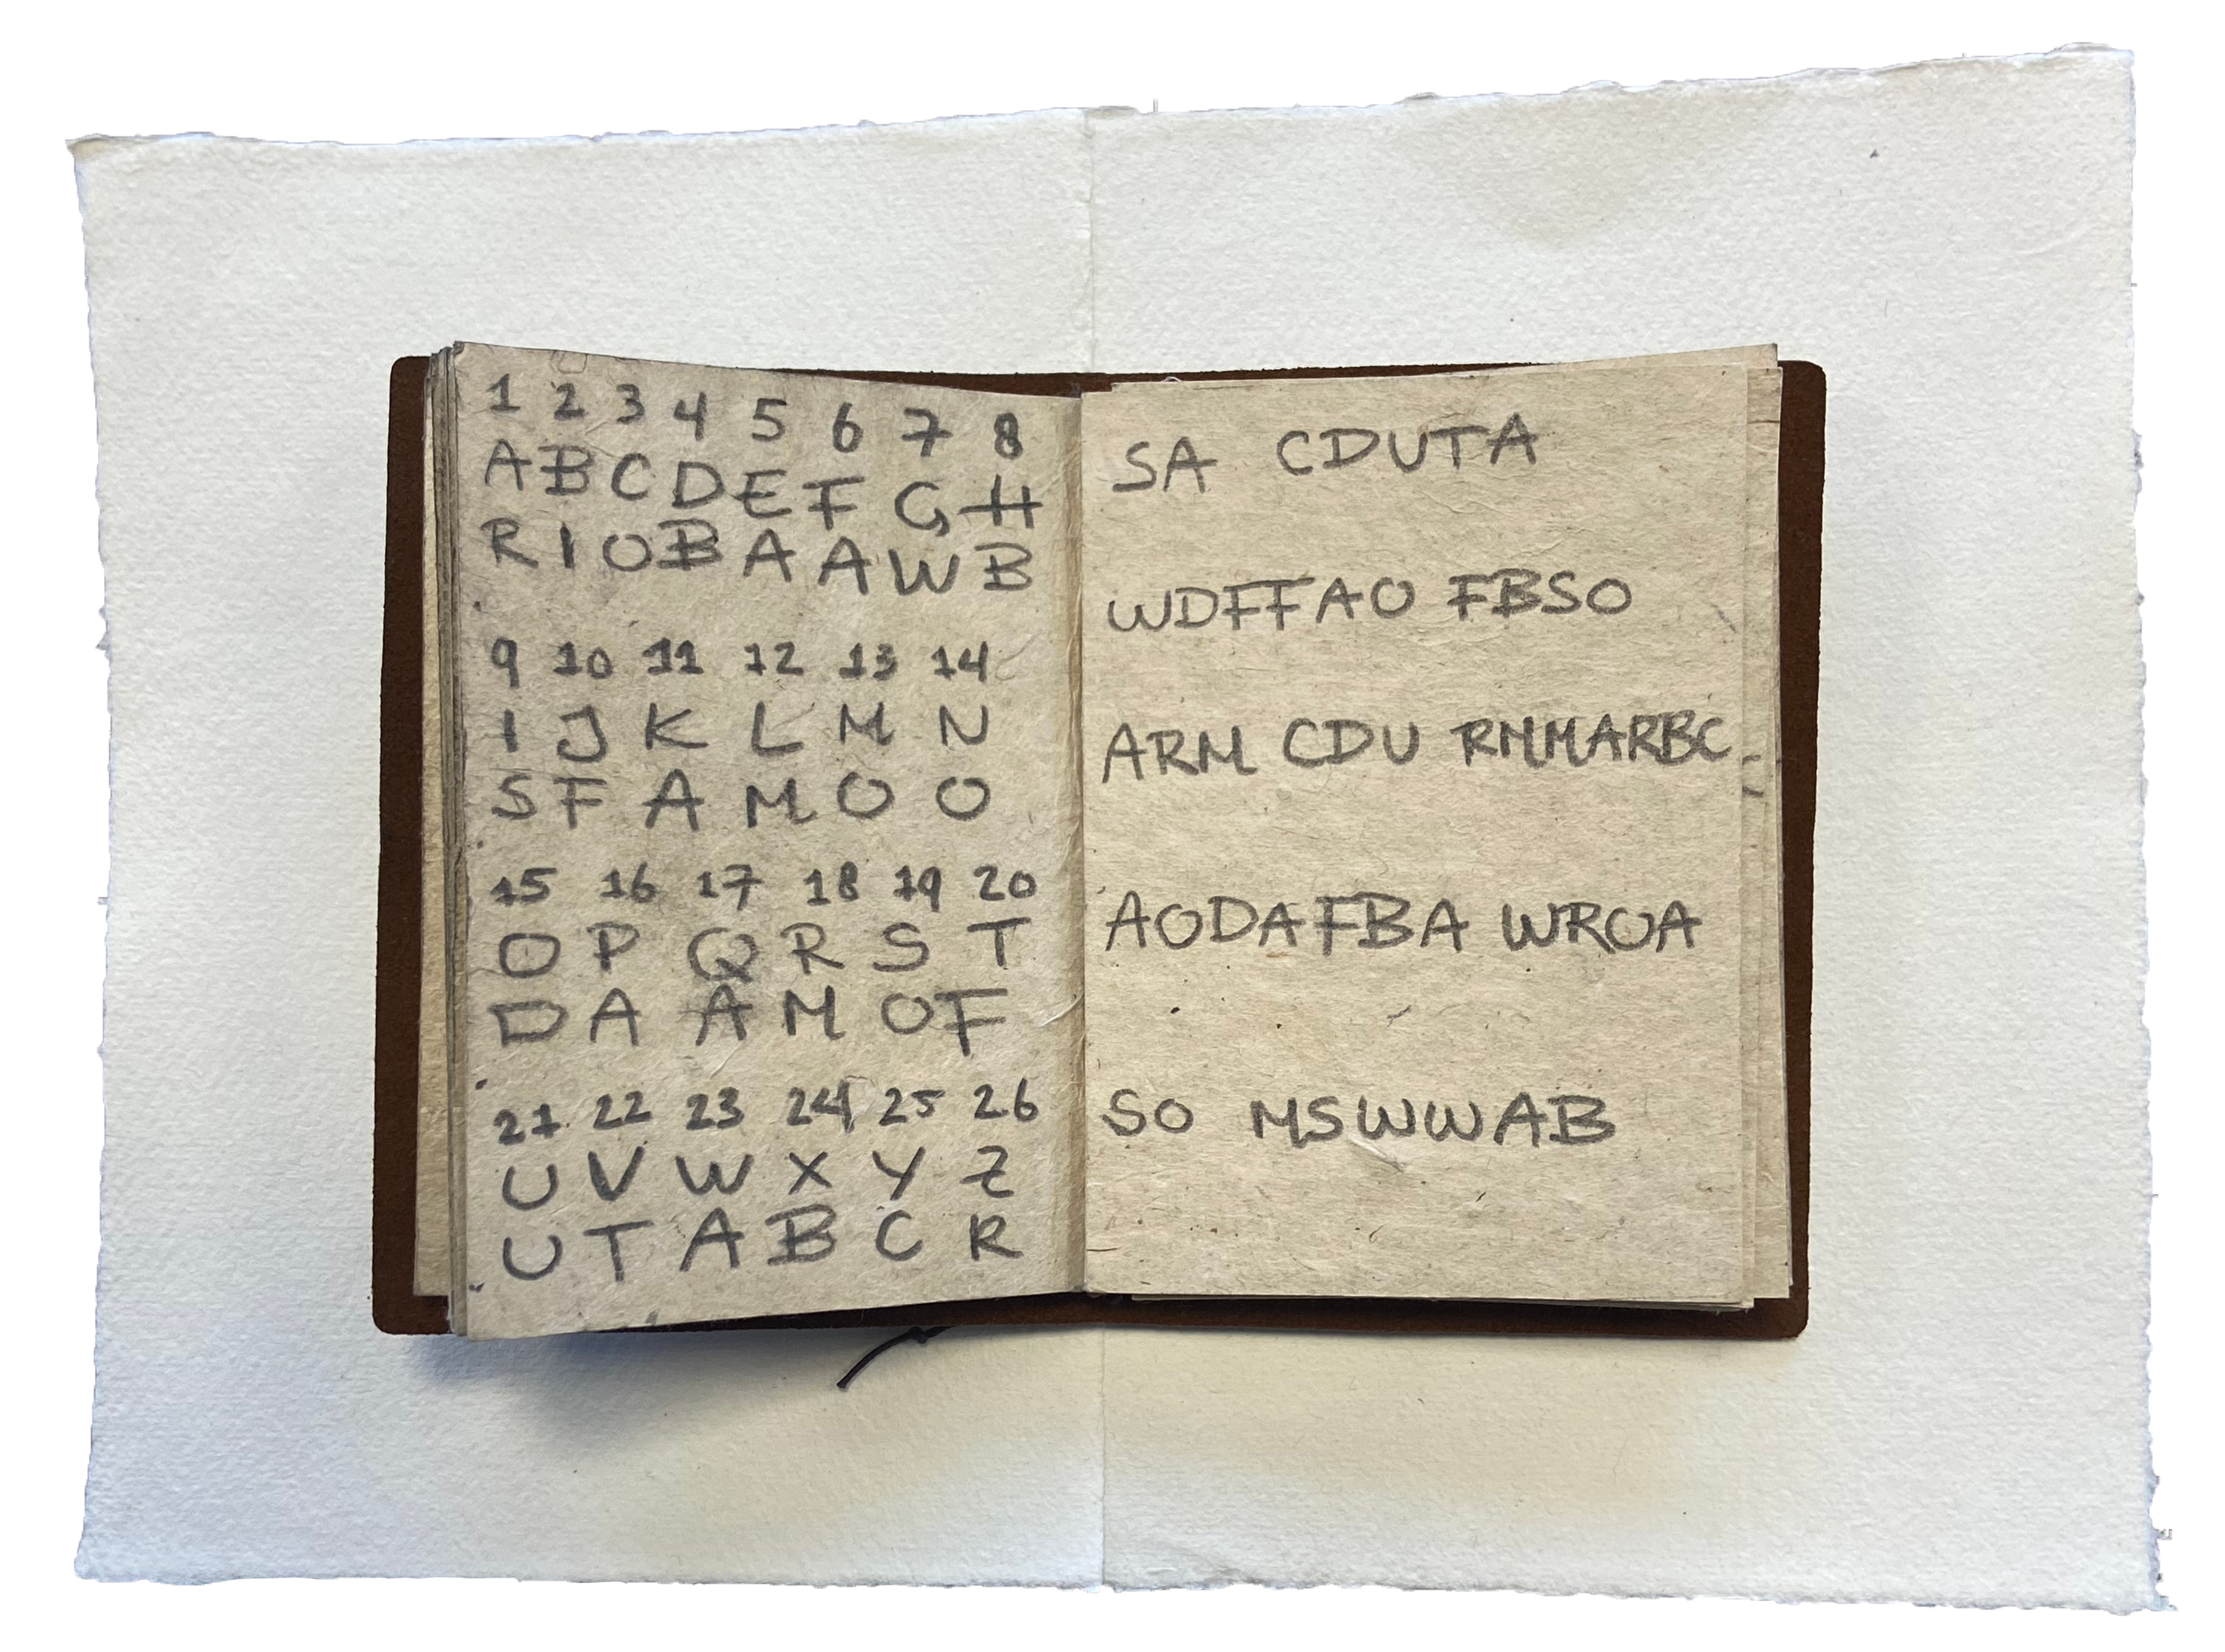 1 2 3 4 5 6 7 8
A B C D E F G H
R I O B A A W B
9 10 11 12 13 14
I J K L M N
S F A M O O
15 16 17 18 19 20
O P Q R S T
D A A M O F
21 22 23 24 25 26
U V W X Y Z
U T A B C R
SA CDUTA
WDFFAO FBSO
ARM CDU RMMARBC
AODAFBA WROA
SO MSWWAB